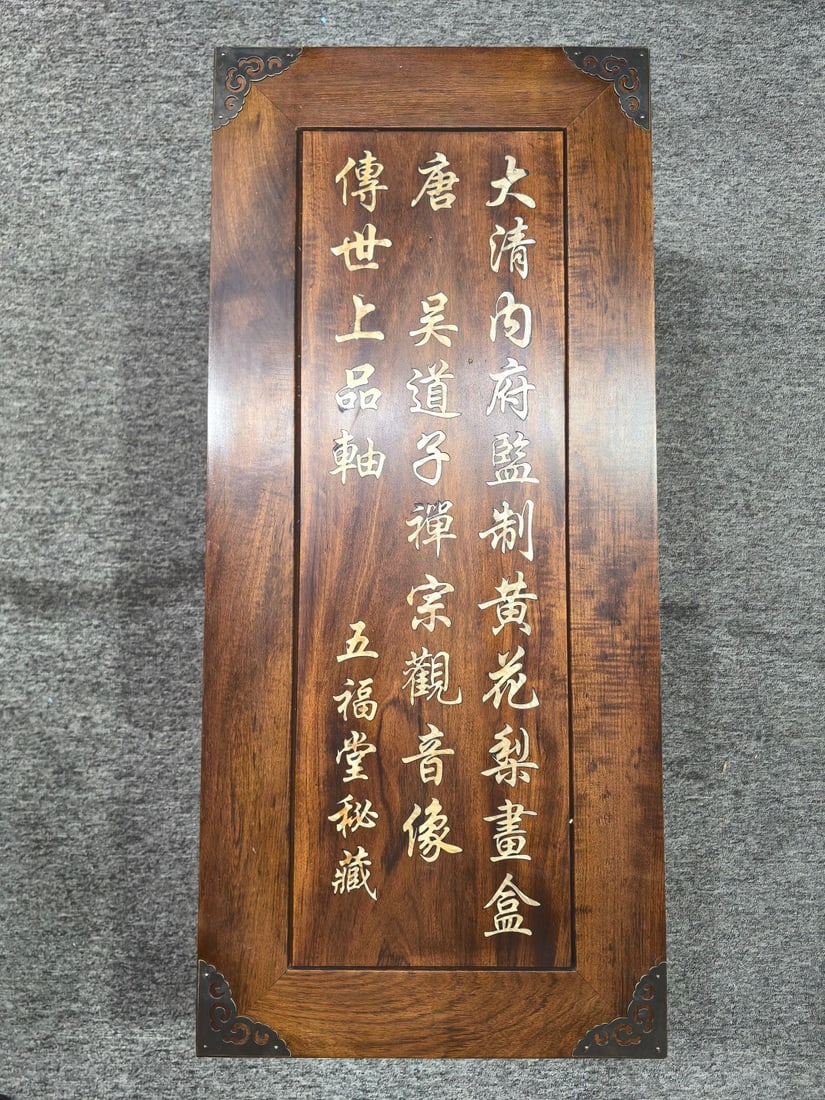 大清内府監制黄花梨畫盒
唐 吴道子禪宗觀音像
傳世上品軸 五福堂秘藏